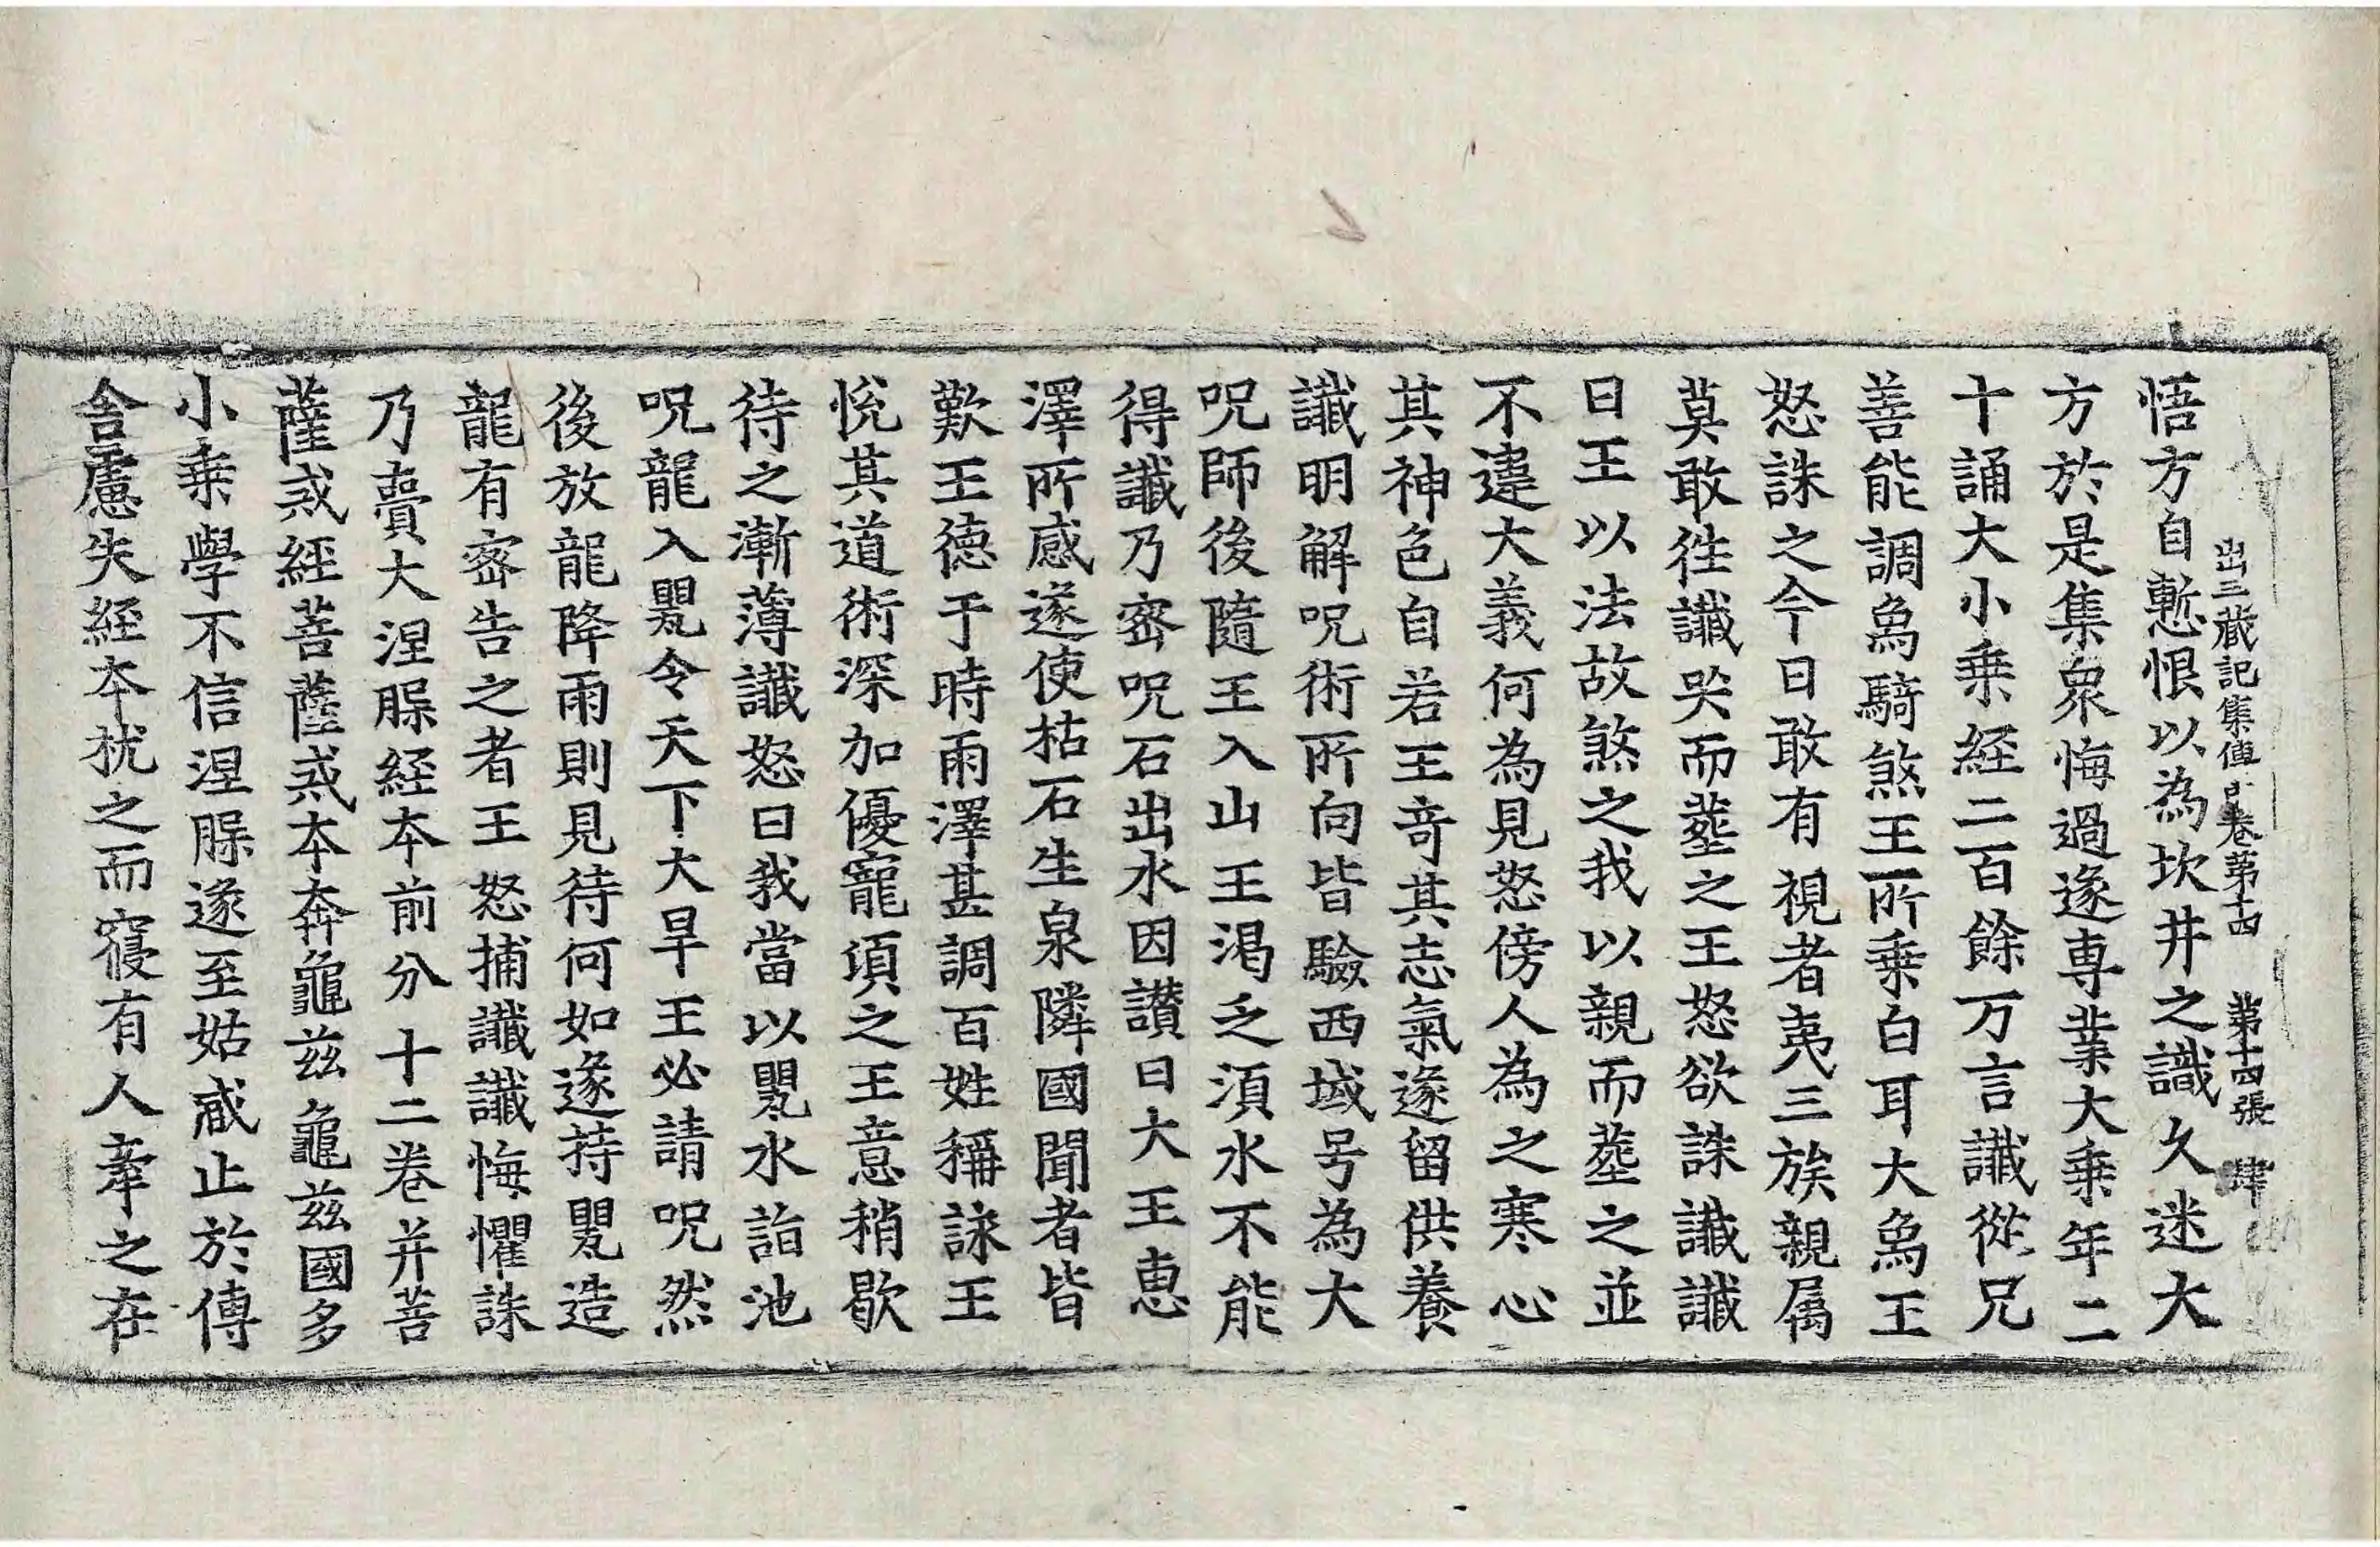 出三藏記集傳中卷第十四 第十四張 肆
悟方自慙恨以為坎井之識久迷大
方於是集衆悔過遂専業大乗年二
十誦大小乗経二百餘万言讖従兄
善能調烏騎煞王所乗白耳大烏王
怒誅之令日敢有視者夷三族親属
莫敢徃讖哭而塟之王怒欲誅讖讖
曰王以法故煞之我以親而塟之並
不違大義何為見怒傍人為之寒心
其神色自若王竒其志氣遂留供養
讖明解呪術所向皆驗西域号為大
呪師後隨王入山王渇乏須水不能
得讖乃宻呪石出水因讃曰大王恵
澤所感遂使枯石生泉隣國聞者皆
歎王徳于時雨澤甚調百姓稱詠王
悅其道術深加優寵頃之王意稍歇
待之漸薄讖怒曰我當以甖水詣池
呪龍入甖令天下大旱王必請呪然
後放龍降雨則見待何如遂持甖造
龍有宻告之者王怒捕讖讖悔懼誅
乃賷大涅腺経本前分十二巻并菩
薩戒経菩薩戒本奔龜茲龜茲國多
小乗學不信涅腺遂至姑臧止於傳
舎慮失経本枕之而寢有人牽之在